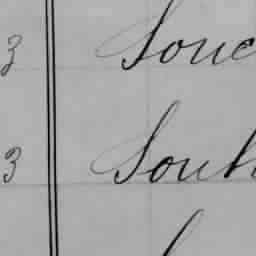 3 Souc
3 South